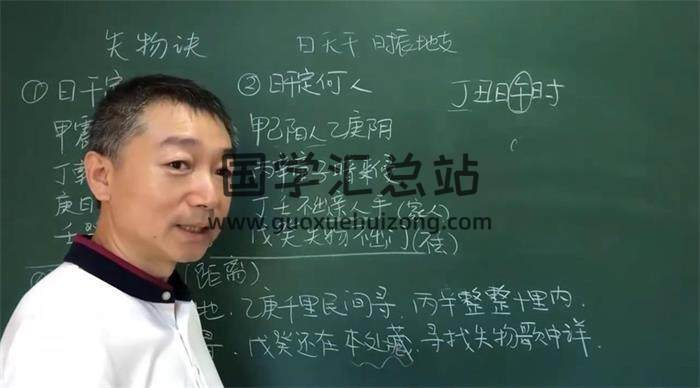 失物诀 日天干 时辰地支
①日干定 ②日干定何人 丁丑日午时
甲震 甲己阳人乙庚阴
丁 丙辛
国学汇总站
庚日 丁壬不出亲人手(家人)
www.guoxuehuizong.com
壬 戊癸失物不出门(在)
(距离)
地.乙庚千里民间寻.丙辛整整十里内.
寻.戊癸还在本处藏.寻找失物歌中详.